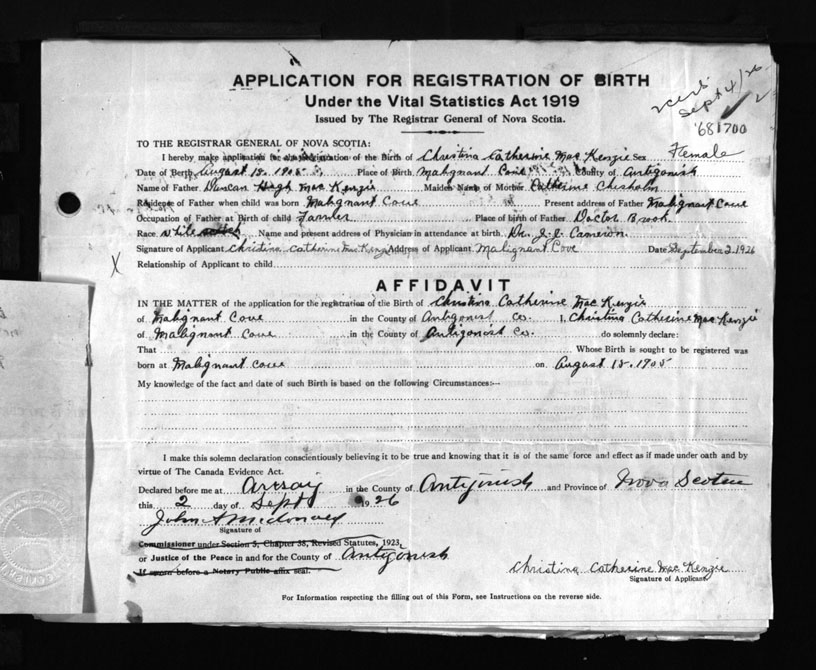 APPLICATION FOR REGISTRATION OF BIRTH
Under the Vital Statistics Act 1919
Issued by The Registrar General of Nova Scotia.
Sept 4/26
68 1700
TO THE REGISTRAR GENERAL OF NOVA SCOTIA:
I hereby make application for the registration of the Birth of Christina Catherine Mac Kenzie Sex Female
Date of Berth August 15. 1905 Place of Birth Malignant Cove County of Antigonish
Name of Father Duncan Hugh Mac Kenzie Maiden Name of Mother Catherine Chisholm
Residence of Father when child was born Malignant Cove Present address of Father Malignant Cove
Occupation of Father at Birth of child Farmer Place of birth of Father Doctor Brook
Race White Name and present address of Physician in attendance at birth. Dr. J. J. Cameron.
Signature of Applicant Christina Catherine Mac Kenzie Address of Applicant Malignant Cove Date September 2. 1926
X Relationship of Applicant to child
AFFIDAVIT
IN THE MATTER of the application for the registration of the Birth of Christina Catherine Mac Kenzie
of Malignant Cove in the County of Antigonish Co. I, Christina Catherine Mac Kenzie
of Malignant Cove in the County of Antigonish Co. do solemnly declare:
That Whose Birth is sought to be registered was
born at Malignant Cove on August 15. 1905
My knowledge of the fact and date of such Birth is based on the following Circumstances:—
I make this solemn declaration conscientiously believing it to be true and knowing that it is of the same force and effect as if made under oath and by
virtue of The Canada Evidence Act.
Declared before me at Arisaig in the County of Antigonish and Province of Nova Scotia
this 2 day of Sept 1926
John A McDonald
Signature of
Commissioner under Section 5, Chapter 38, Revised Statutes, 1923,
or Justice of the Peace in and for the County of Antigonish
If sworn before a Notary Public affix seal.
Christina Catherine Mac Kenzie
Signature of Applicant
For Information respecting the filling out of this Form, see Instructions on the reverse side.